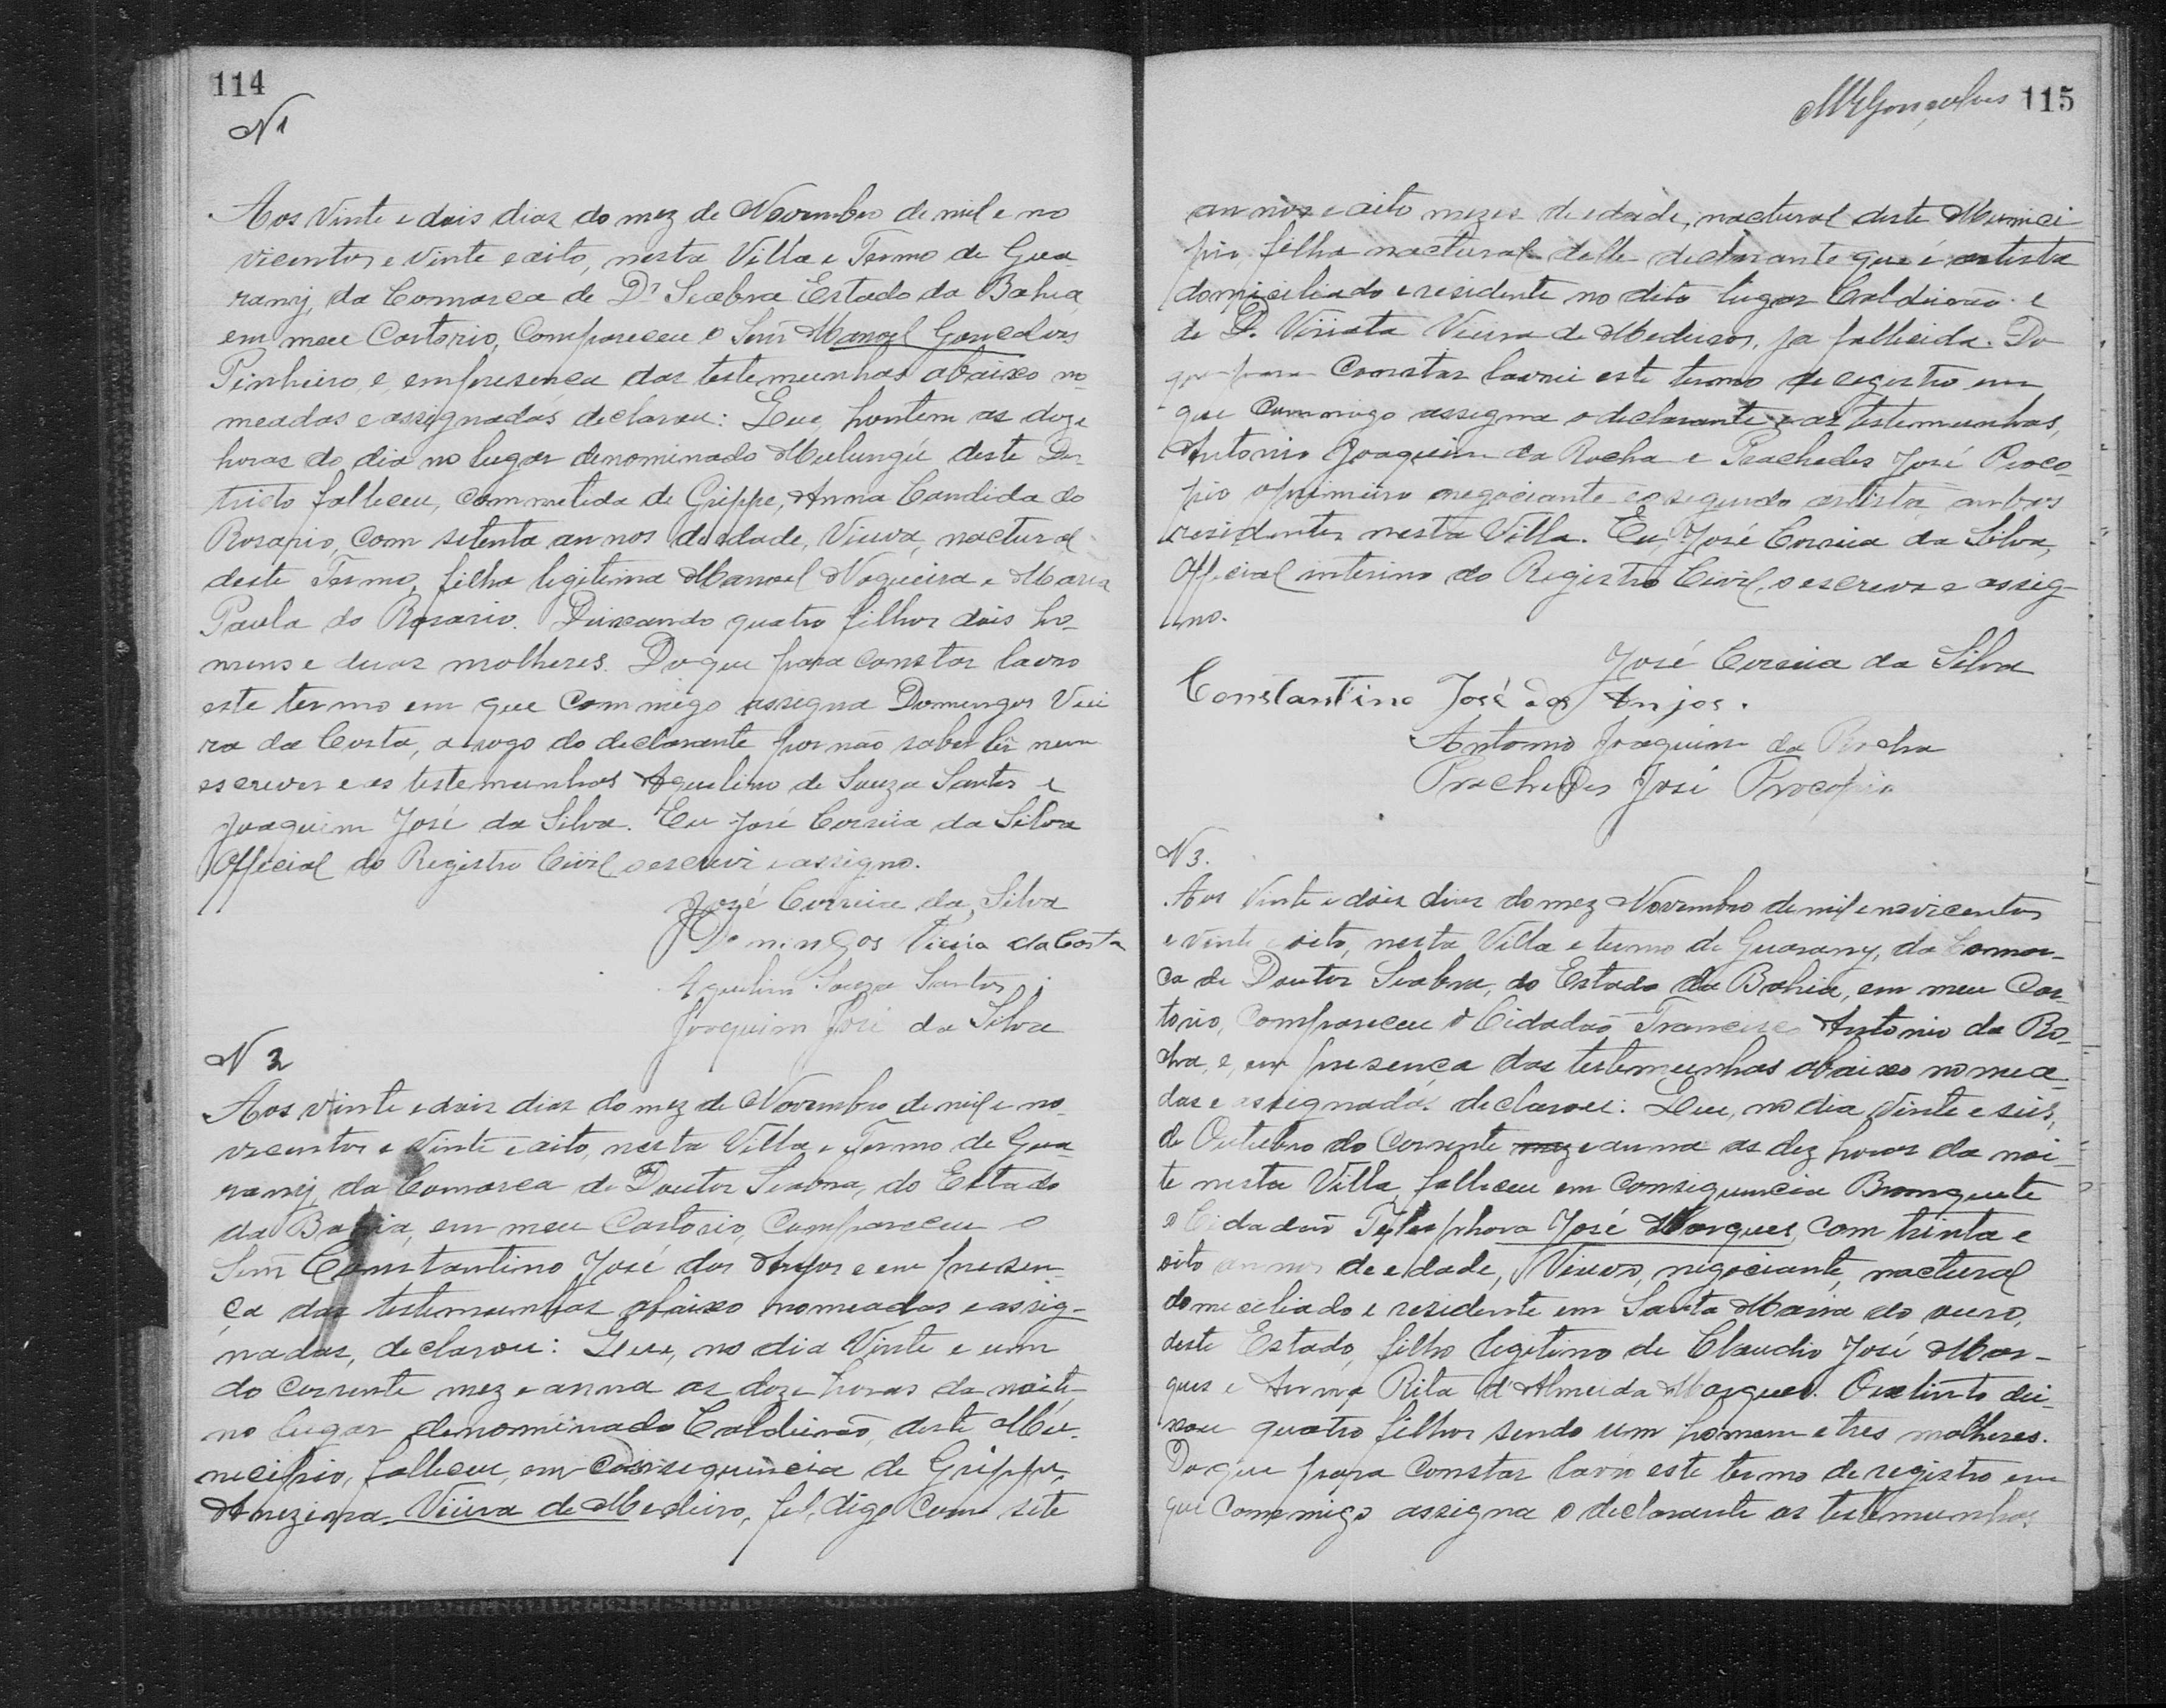 114
N 1
Aos Vinte e dois dias do mez de Novembro de mil e no
vicentos e Vinte e oito, nesta Villa e Termo de Gua
rany, da Comarca de Dr Seabra Estado da Bahia
em meu Cartorio, Compareceu o Senr Manoel Gonçalves
Pinheiro e, em presença das testemunhas abaixo no-
meadas e assignadas declarou: Que, hontem as doze
horas do dia no lugar denominado Mulungú deste Des-
tricto falleceu, commetida de Grippe, Anna Candida do
Rosario, Com setenta annos de edade, Viuva, nactural
deste Termo, filha legitima Manoel Nogueira e Maria
Paula do Rosario. Deixando quatro filhos dois ho-
mens e duas molheres. Do que para constar lavro
este termo em que Commigo assigna Domingos Viei
ra da Costa, a rogo do declarante por não saber lêr nem
escrever e as testemunhas Aquelino de Souza Santos e
Joaquim José da Silva. Eu José Correia da Silva
Official do Registro Civil o escrevi e assigno.
José Correia da Silva
Domingos Vieira da Costa
Aquelino Souza Santos
Joaquim José da Silva
N 2
Aos vinte e dois dias do mez de Novembro de mil e no-
vicentos e Vinte e oito, nesta Villa e Termo de Gua
rany, da Comarca de Doutor Seabra, do Estado
da Bahia, em meu Cartorio, Compareceu o
Senr Constantino José dos Anjos e em presen-
ça das testemunhas abaixo nomeadas e assig-
nadas, declarou: Que, no dia Vinte e um
do corrente mez e anno as doze horas da noite
no lugar denominado Caldeirão, deste Mu-
nicipio, falleceu, em Consequencia de Grippe,
Vieira de Medeiro, fel, digo Com sete
MGonçalves 115
annos e oito mezes de edade, nactural deste Munici
pio, filha nactural delle declarante que é artista
domiciliado e residente no dito lugar Caldeirão e
de D. Vieira de Medeiros, ja fallecida. Do
que para Constar lavrei este termo de registro em
que Commigo assigna o declarante e as testemunhas,
Antonio Joaquim da Rocha e Prachedes José Proco-
pio o primeiro negociante e o segundo artista ambos
residentes nesta Villa. Eu, José Correia da Silva,
Official interino do Registro Civil, o escrevo e assig-
no.
José Correia da Silva
Constantino José dos Anjos.
Antonio Joaquim da Rocha
Prachedes José Procopio
N 3.
Aos Vinte e dois dias do mez Novembro de mil e novicentos
e vinte e oito, nesta Villa e termo de Guarany, da Comar-
ca de Doutor Seabra, do Estado da Bahia, em meu Car-
torio, Compareceu o Cidadão Francisco Antonio da Ro-
cha, e, em presença das testemunhas abaixo nomea-
das e assignadas declarou: Que, no dia Vinte e seis,
de Outubro do Corrente mez e anno as dez horas da noi-
te nesta Villa, falleceu em Consequencia Bronquite
o Cidadão Telesphoro José Marques, com trinta e
oito annos de edade, Viuvo, negociante, nactural
domiciliado e residente em Santa Maria do ouro,
deste Estado, filho legitimo de Claudio José Mar-
ques e Anna Rita d'Almeida Marques. O extinto dei-
xou quatro filhos sendo um homem e tres molheres.
Do que para Constar lavro este termo de registro em
que Commigo assigna o declarante as testemunhas